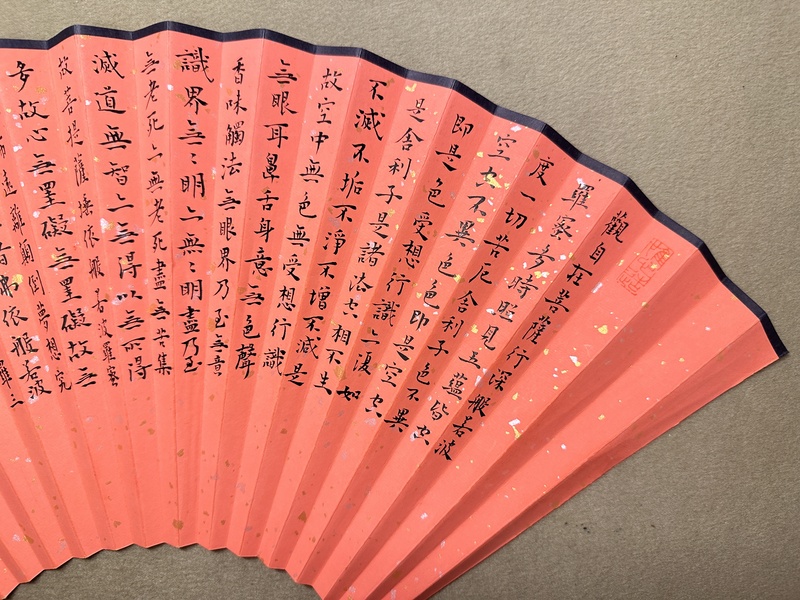 觀自在菩薩行深般若波
羅蜜多時照見五蘊皆空
度一切苦厄舍利子色不異
空空不異色色即是空空
即是色受想行識亦復如
是舍利子是諸法空相不生
不滅不垢不淨不增不減是
故空中無色無受想行識
無眼耳鼻舌身意無色聲
香味觸法無眼界乃至無意
識界無〻明亦無〻明盡乃至
無老死亦無老死盡無苦集
滅道無智亦無得以無所得
故菩提薩埵依般若波羅蜜
多故心無罣礙無罣礙故無
遠離顛倒夢想究
依般若波
羅三